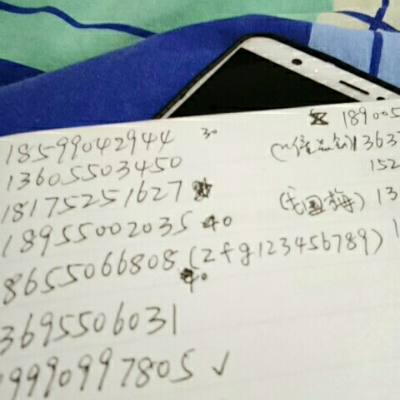 18599042944 30
13605503450
18175251627
18955002035 40
8655066808 (zfg123456789)
40
3695506031
9990997805 ✓
189005
1363
152
(毛国梅) 13